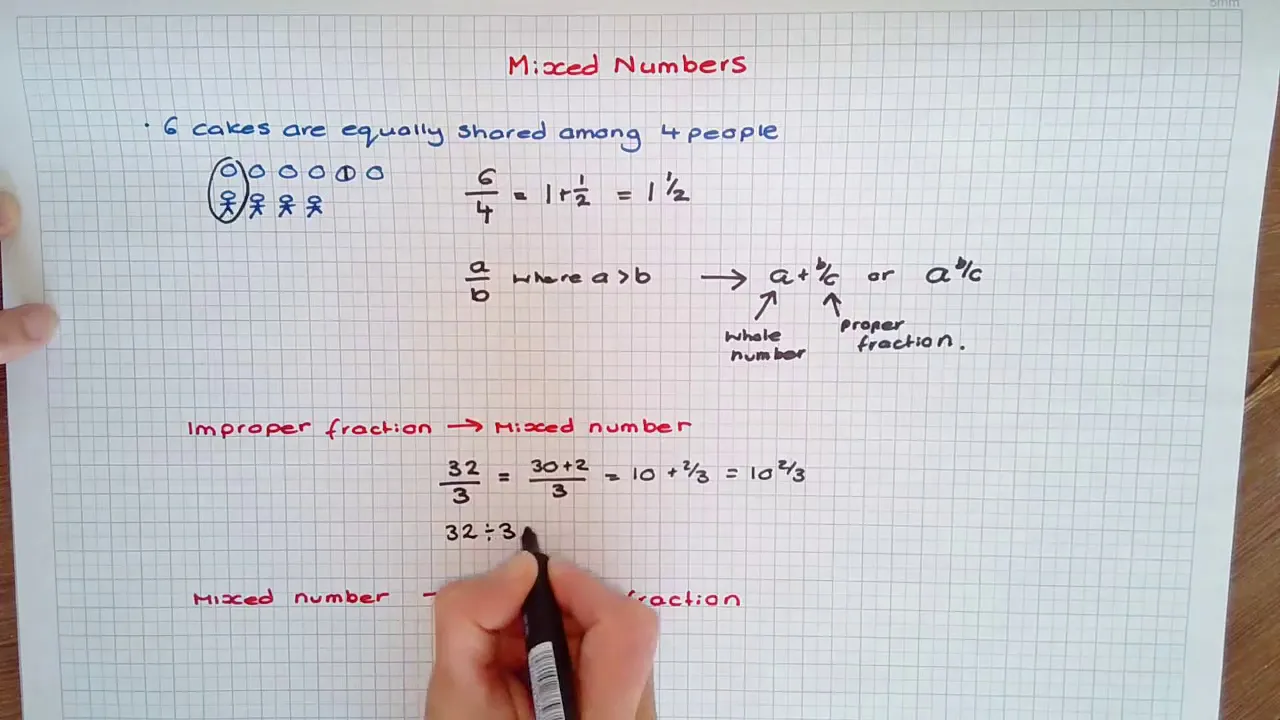 5mm
Mixed Numbers
· 6 cakes are equally shared among 4 people
6/4 = 1 + 1/2 = 1 1/2
a/b where a > b → a + b/c or a b/c
whole number
proper fraction.
Improper fraction → Mixed number
32/3 = 30+2/3 = 10 + 2/3 = 10 2/3
32 ÷ 3
Mixed number → fraction